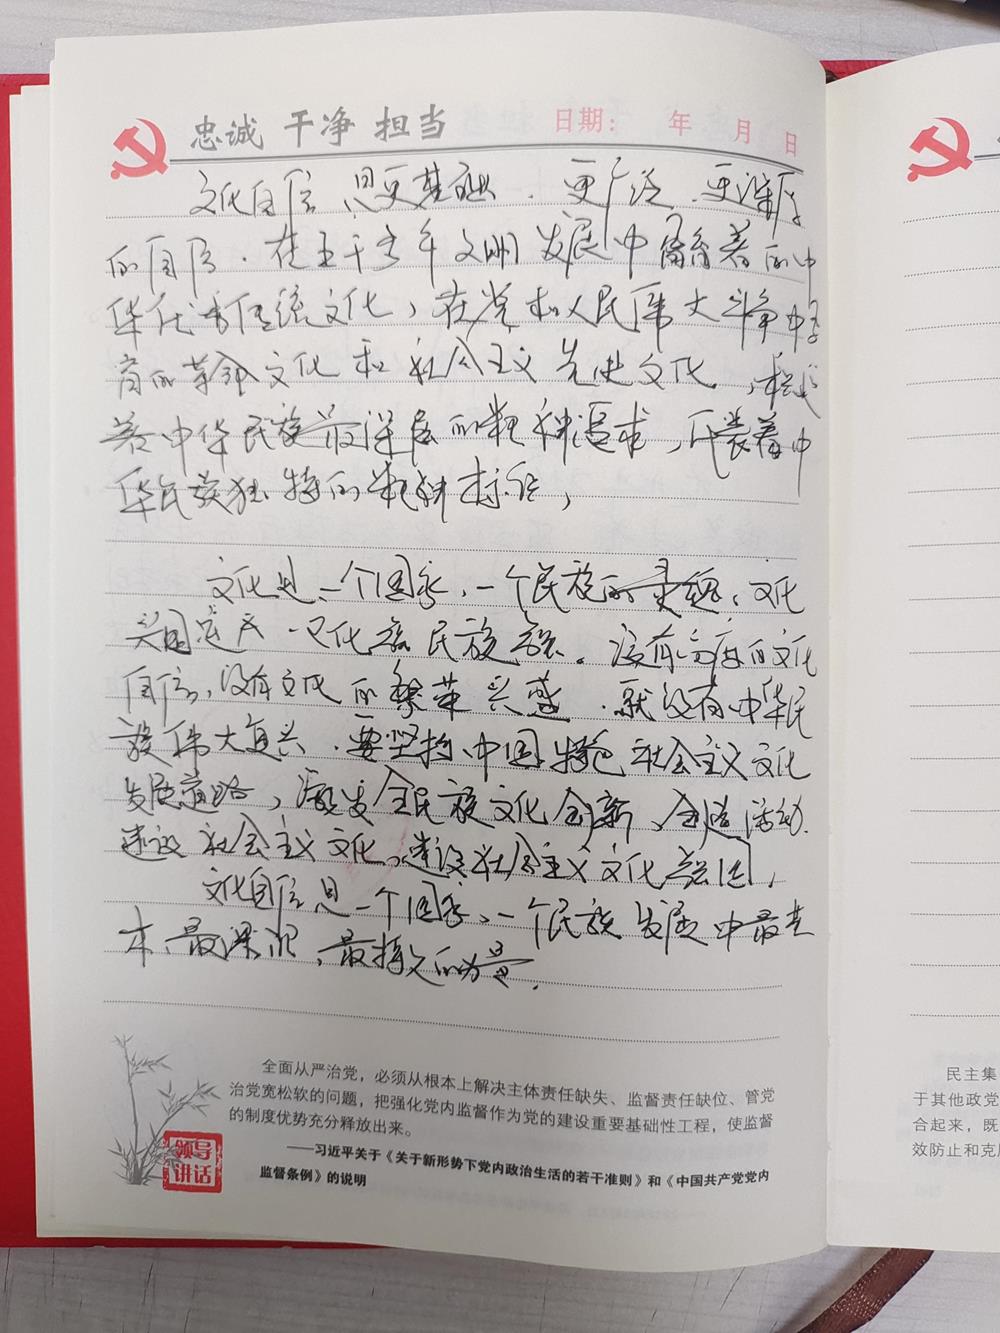 忠诚 干净 担当 日期： 年 月 日
文化自信是更基础、更广泛、更深厚
的自信。在五千多年文明发展中孕育着的中
华优秀传统文化，在党和人民伟大斗争中孕
育的革命文化和社会主义先进文化，积淀
着中华民族最深层的精神追求，代表着中
华民族独特的精神标识，
文化是一个国家、一个民族的灵魂。文化
兴国运兴，文化强民族强。没有高度的文化
自信，没有文化的繁荣兴盛，就没有中华民
族伟大复兴。要坚持中国特色社会主义文化
发展道路，激发全民族文化创新、创造活动，
建设社会主义文化，建设社会主义文化强国，
文化自信是一个国家、一个民族发展中最基
本、最深沉、最持久的力量。
全面从严治党，必须从根本上解决主体责任缺失、监督责任缺位、管党
治党宽松软的问题，把强化党内监督作为党的建设重要基础性工程，使监督
的制度优势充分释放出来。
——习近平关于《关于新形势下党内政治生活的若干准则》和《中国共产党党内
监督条例》的说明
领导
讲话
民主集
于其他政党
合起来，既
效防止和克